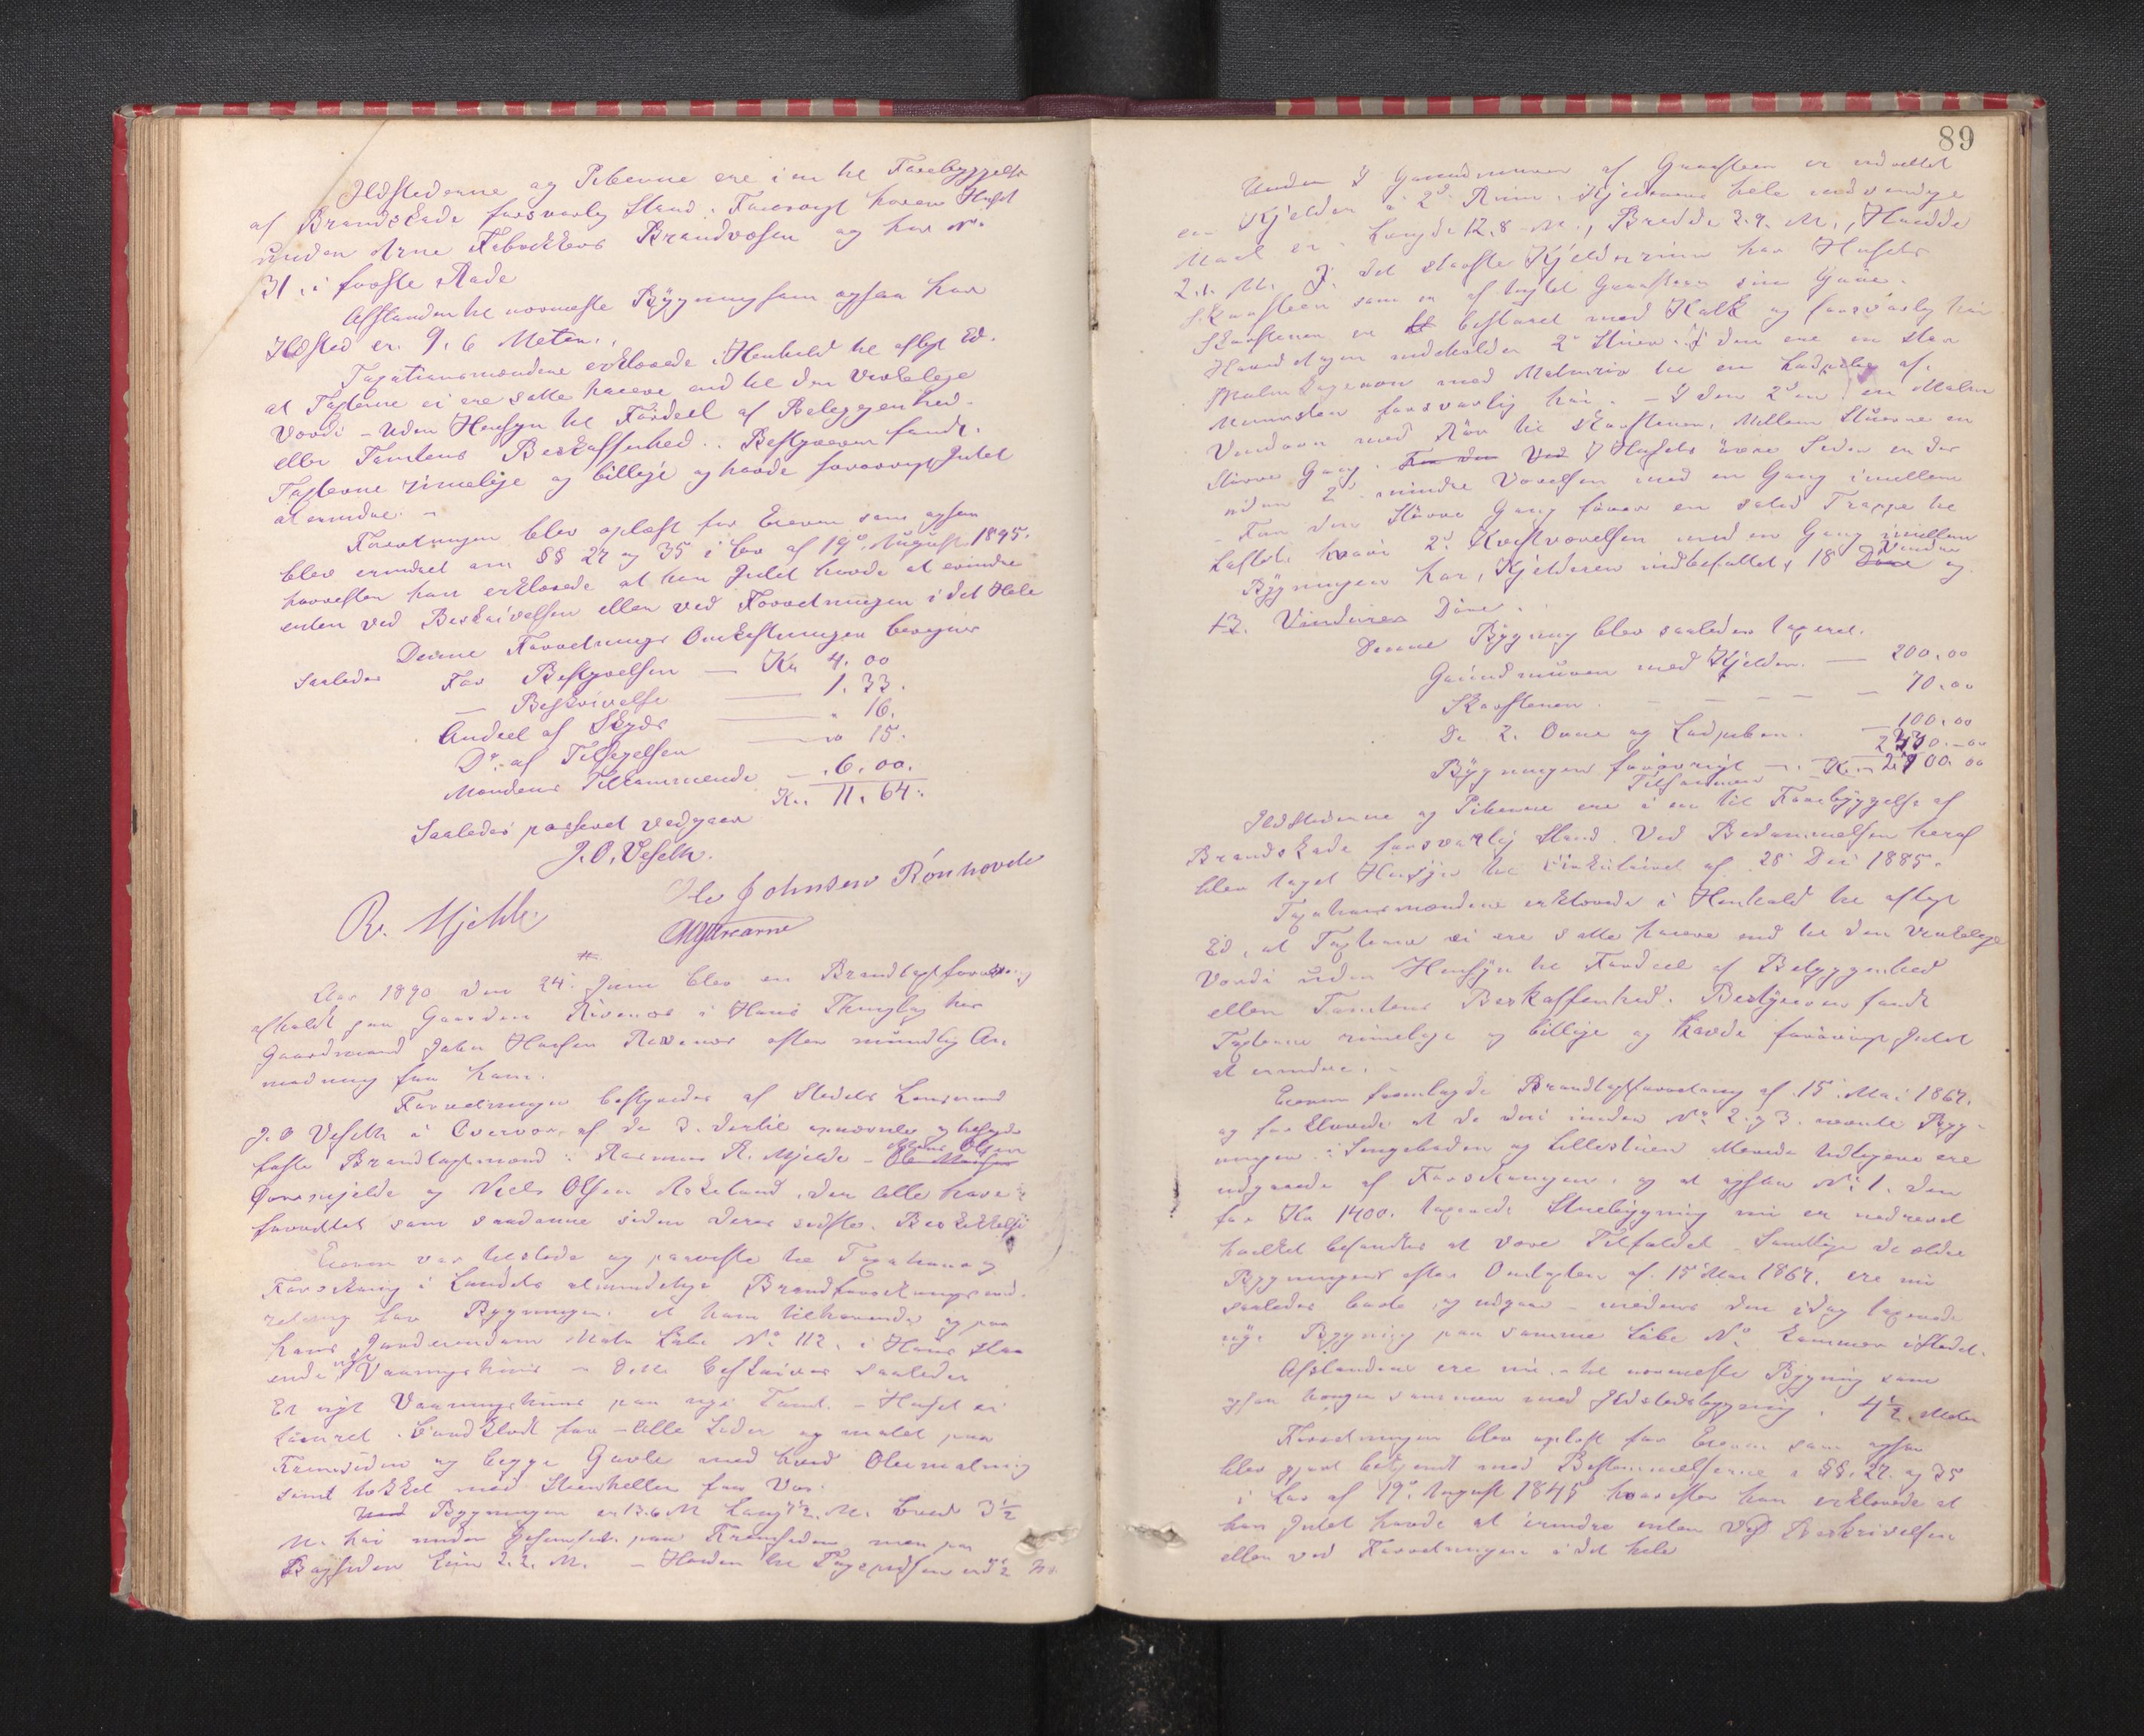 Ildstederne og Piberne ere i en til Forebyggelse
af Brandskade forsvarlig Stand. Forøvrigt hører Huset
under Arne Fabrikkers Brandvæsen og har Nr.
31 i første Rode
Afstanden til nærmeste Bygning som ogsaa har
Ildsted er 9.6 Meter.
Taxationsmændene erklærede i Henhold til aflagt Ed.
at Taxterne ei ere satte høiere end til den virkelige
Værdi - uden Hensyn til Fordeel af Beliggenhed
eller Tomtens Beskaffenhed. Bestyreren fandt
Taxterne rimelige og billige og havde forøvrigt Intet
at erindre. -
Forretningen blev oplæst for Eieren som ogsaa
blev erindret om §§ 27 og 35 i Lov af 19de August 1845.
hvorefter han erklærede at han Intet havde at erindre
enten ved Beskrivelsen eller ved Forretningen i det Hele
Denne Forretnings Omkostninger beregnes
saaledes For Bestyrelsen — Kr 4.00
— Beskrivelse — 1.33.
Andeel af Skyds — " 16.
Do. af Tilsigelsen — " 15.
Mændens Tilkommende — " 6.00.
Kr. 11.64.
Saaledes passeret vedgaaes
J. O. Veseth.
R. Mjelde Ole Johnsen Rönhovde
#
Aar 1890 den 24. Juni blev en Brandtaxtforretning
afholdt paa Gaarden Risnæs i Haus Thinglag hos
Gaardmand John Hansen Risnæs efter mundtlig An
modning fra ham.
Forretningen bestyredes af Stedets Lensmand
J. O Veseth i Overvær af de 3. dertil opnævnte og
faste Brandtaxtmænd: Rasmus R. Mjelde - Ole Olsen
Øvremjelde og Niels Olsen Askeland, der alle have
forrettet som saadanne siden deres sidste Beskikkelse
Eieren var tilstede og paaviste til Taxation og
Forsikring i Landets almindelige Brandforsikringsind-
retning for Bygninger, et ham tilhørende og paa
hans Jordeiendom Matr Løbe No 112. i Haus staa
ende nyt Vaaningshuus - Dette beskrives saaledes
Et nyt Vaaningshuus paa nye Tomt. - Huset er
tømret. Bordklædt paa alle Sider og malet paa
Fremsiden og begge Gavle med hvid Oliemaling
samt tækket med Steenheller paa Ver
Bygningen er 13.6 M Lang 7½ M. bred 3½
M. høi under Gesimset paa Fremsiden men paa
Bagsiden kun 2.2. M. - Høiden til Tagspidsen er 7½ M.
89
Under I Grundmuren af Graasteen er indrettet
en Kjelder i 2de Rum. Kjelderens hele indvendige
Maal er. Længde 12.8 M., Bredde 3.9. M., Høidde
2.1. M. I det største Kjelderrum har Husets
Skorsteen som er af hugget Graasteen sin Grue.
Skorstenen er bestøbet med Kalk og forsvarlig høi
Hoved etagen indeholder 2de Stuer. I den ene en stor
Malm Etageovn med Malmrør til en Ladpibe af
Muursteen forsvarlig høi. - I den 2den en Malm
Vindovn med Rør til Skorstenen, Mellem Stuerne en
Større Gang. I Husets øvre Side er der
uden 2de mindre Værelser med en Gang imellem
- Fra den Større Gang fører en solid Trappe til
Loftet hvori 2de Kvistværelser med en Gang imellem
Bygningen har, Kjelderen indbefattet, 18 Vinduer og
13. Döre.
Denne Bygning blev saaledes taxeret.
Grundmuren med Kjelder. — 200.00
Skorstenen. — 70.00
De 2. Ovne og Ladpiben. — 100.00
Bygningen forøvrigt — 2330.00
Tilsammen Kr. 2700.00
Ildstederne og Piberne ere i en til Forebyggelse af
Brandskade forsvarlig Stand. Ved Bedømmelsen heraf
blev taget Hensyn til Cirkulæret af 28 Dec 1885.
Taxationsmændene erklærede i Henhold til aflagt
Ed, at Taxterne ei ere satte høiere end til den virkelige
Værdi uden Hensyn til Fordeel af Beliggenhed
eller Tomtens Beskaffenhed. Bestyreren fandt
Taxterne rimelige og billige og havde forøvrigt Intet
at erindre. -
Eieren fremlagde Brandtaxtforretning af 15 Mai 1867.
og forklarede at de deri under No 2. og 3. nævnte Byg-
ninger: Sengeboden og Lillestuen ere
udgaaede af Forsikringen, og at ogsaa No 1. den
for Kr 1400. taxerede Stuebygning nu er nedrevet
hvilket befandtes at være Tilfældet. Samtlige de ældre
Bygninger efter Omtaxten af 15 Mai 1867, ere nu
saaledes borte og udgaar - medens den idag taxerede
nye Bygning paa samme Løbe No kommer istedet.
Afstandene ere nu - til nærmeste Bygning som
ogsaa hænger sammen med Ildstedsbygning, 4½ Meter
Forretningen blev oplæst for Eieren som ogsaa
blev gjort bekjendt med Bestemmelserne i §§. 27. og 35
i Lov af 19de August 1845 hvorefter han erklærede at
han Intet havde at erindre enten ved Beskrivelsen
eller ved Forretningen i det hele